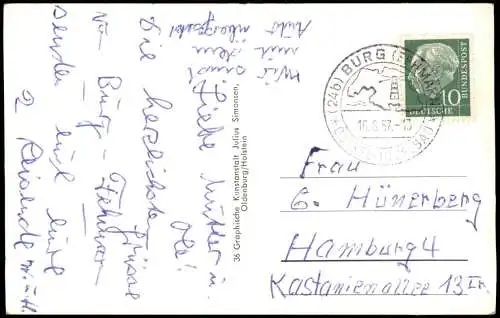 Wir sind
mit dem
Auto rübergefahrt
Liebe Mutter u.
Ole!
Die herzlichsten Grüsse
von Burg - Fehmarn
senden euch eure
2 Reisende
36 Graphische Kunstanstalt Julius Simonsen,
Oldenburg/Holstein
(24b) BURG (FEHMARN)
16.6.57.-13
DEUTSCHE
BUNDESPOST
10
Frau
C. Hünerberg
Hamburg 4
Kastanienallee 13 III r.